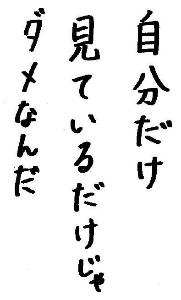 自分だけ
見ているだけじゃ
ダメなんだ